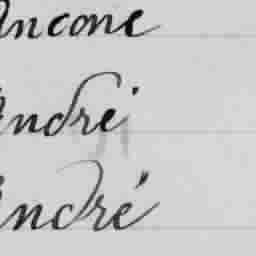 Ancone
André
André